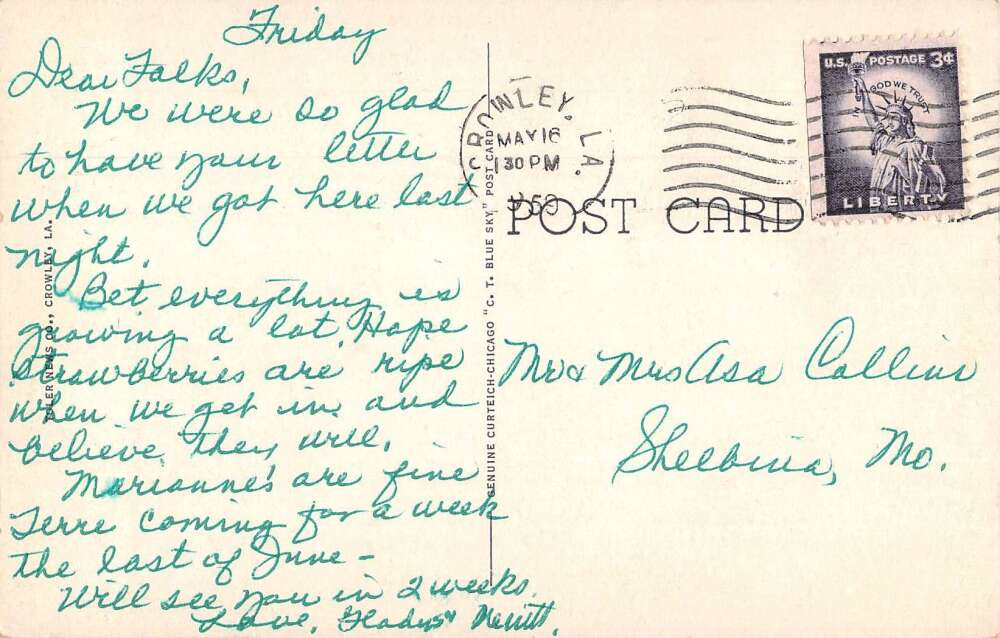 Friday
Dear Folks,
We were so glad
to have your letter
when we got here last
night.
Bet everything is
growing a lot. Hope
strawberries are ripe
when we get in, and
believe they will.
Marianne's are fine
Terre coming for a week
the last of June -
Will see you in 2 weeks.
Love, Gladys & Merritt.
TYLER NEWS CO., CROWLEY, LA.
GENUINE CURTEICH-CHICAGO "C. T. BLUE SKY" POST CARD
CROWLEY, LA.
MAY 16
1 30 PM
POST CARD
U.S. POSTAGE 3¢
IN GOD WE TRUST
LIBERTY
Mr & Mrs Asa Collins
Shelbina, Mo.